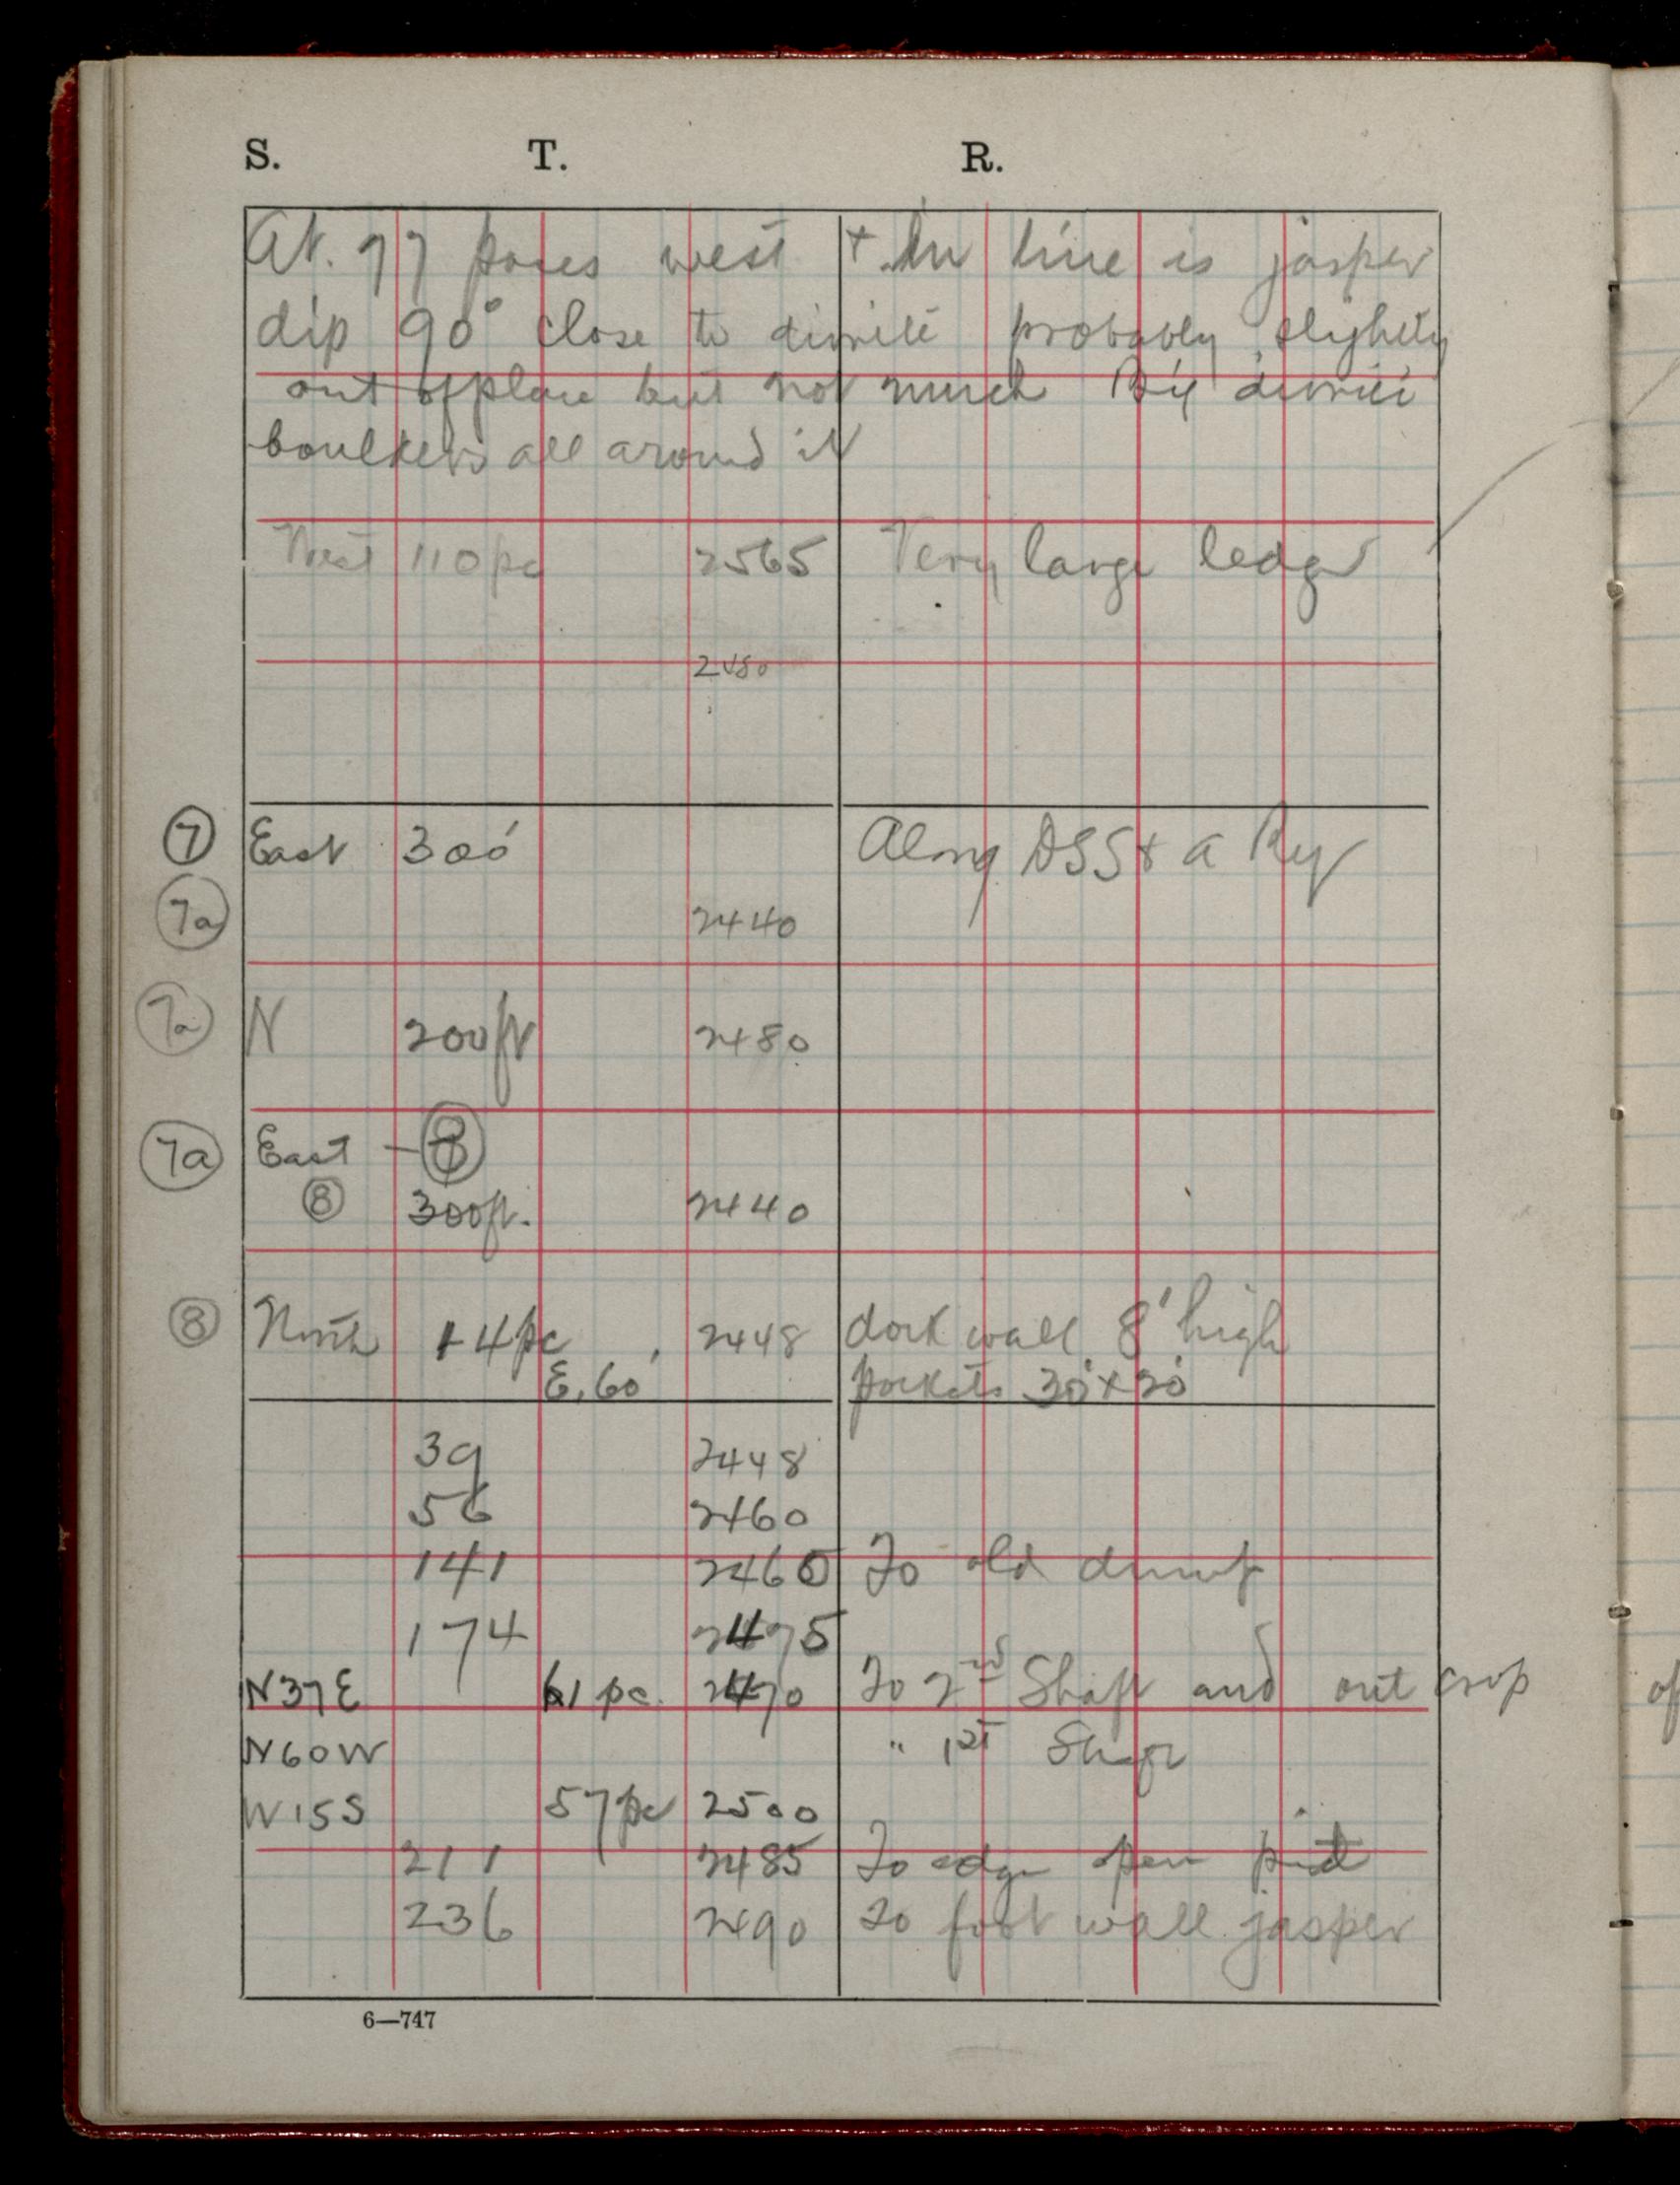 S. T. R.
At. 77 paces west + In line is jasper
dip 90° close to diorite probably slightly
out of place but not much Big diorite
boulders all around it
West 110 pc 2565 Very large ledge
2480
7 East 300' Along DSS & A Ry
7a 2440
7a N 200 ft 2480
7a East - 8
8 300 ft. 2440
8 North 14 pc 2448 wall 8' high
E. 60' pockets 30' x 20'
39 2448
56 2460
141 2465 To old dump
174 2475
N37E 61 pc. 2470 To 2nd Shaft and out crop
N60W " 1st Shaft
W15S 57 pc 2500
211 2485 To edge open pit
236 2490 To foot wall jasper
6—747